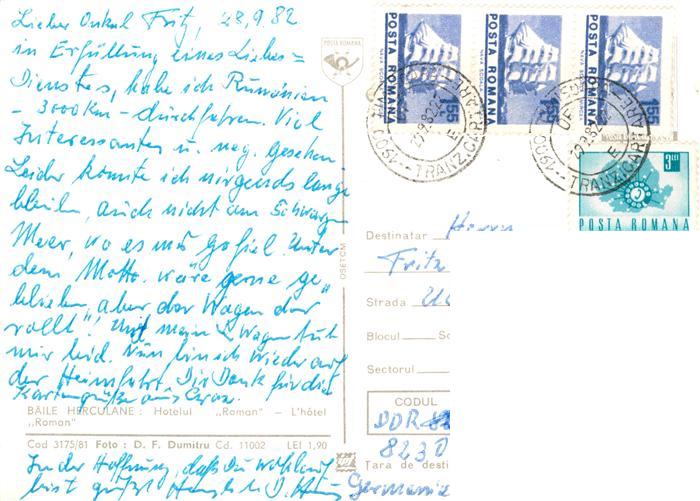 Lieber Onkel Fritz, 28.9.82
in Erfüllung eines Liebes=
Dienstes, habe ich Rumänien
- 3000 km - durchfahren. Viel
Interessantes u. neg. gesehen
Leider konnte ich nirgends lange
bleiben, auch nicht am Schwarzen
Meer, wo es mir gefiel. Unter
dem Motto. wäre gerne ge„
blieben, aber der Wagen der
rollt"! Und mein Wagen tut
mir leid. Nun bin ich wieder auf
der Heimfahrt. Dir Dank für die
Kartengrüße aus
BĂILE HERCULANE: Hotelul „Roman" – L'hôtel
„Roman"
Cod 3175/81 Foto: D. F. Dumitru Cd. 11002 LEI 1,90
In der Hoffnung, daß Du wohlauf
bist grüßt
POSTA ROMANA
OSETCM
POSTA ROMANA
1.55
POSTA ROMANA
1.55
POSTA ROMANA
1.55
TRANZ.CARTARE
1900
TRANZ.CARTARE
1900
3 LEI
POSTA ROMANA
Destinatar Herrn
Fritz
Strada
Blocul Sc
Sectorul
CODUL
DDR
8230
Țara de desti
Germania